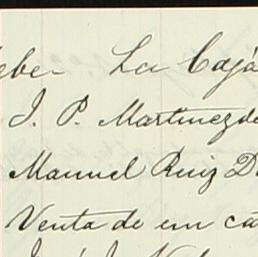 La Caja
J. P. Martinez de
Manuel Ruiz D
Venta de em ca